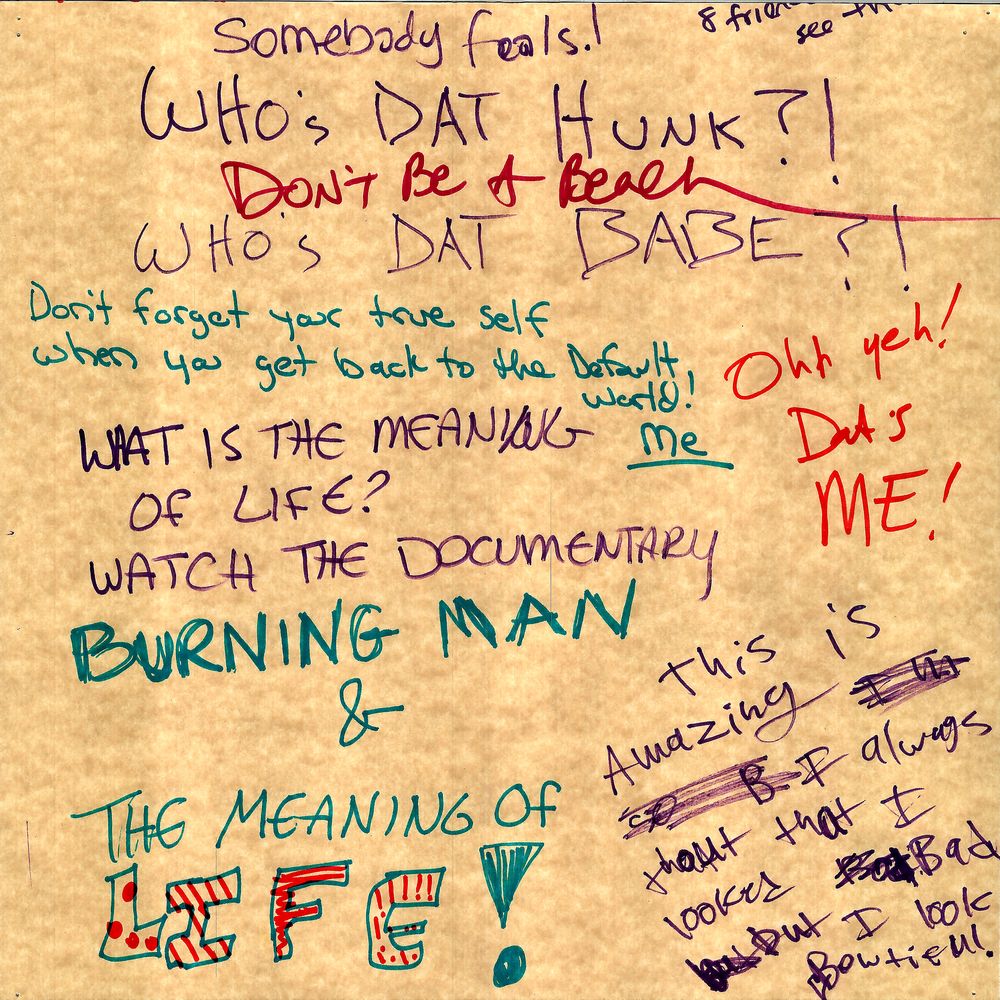 Somebody feels.!
8 frien
see th
WHO'S DAT HUNK?!
DON'T BE A Beach
WHO'S DAT BABE?!
Don't forget your true self
when you get back to the Default,
world!
Me
Ohh yeh!
Dat's
ME!
WHAT IS THE MEANING
OF LIFE?
WATCH THE DOCUMENTARY
BURNING MAN
&
THE MEANING OF
LIFE!
This is
Amazing
I always
that that I
lookes Bad
but I look
Bowtieul!